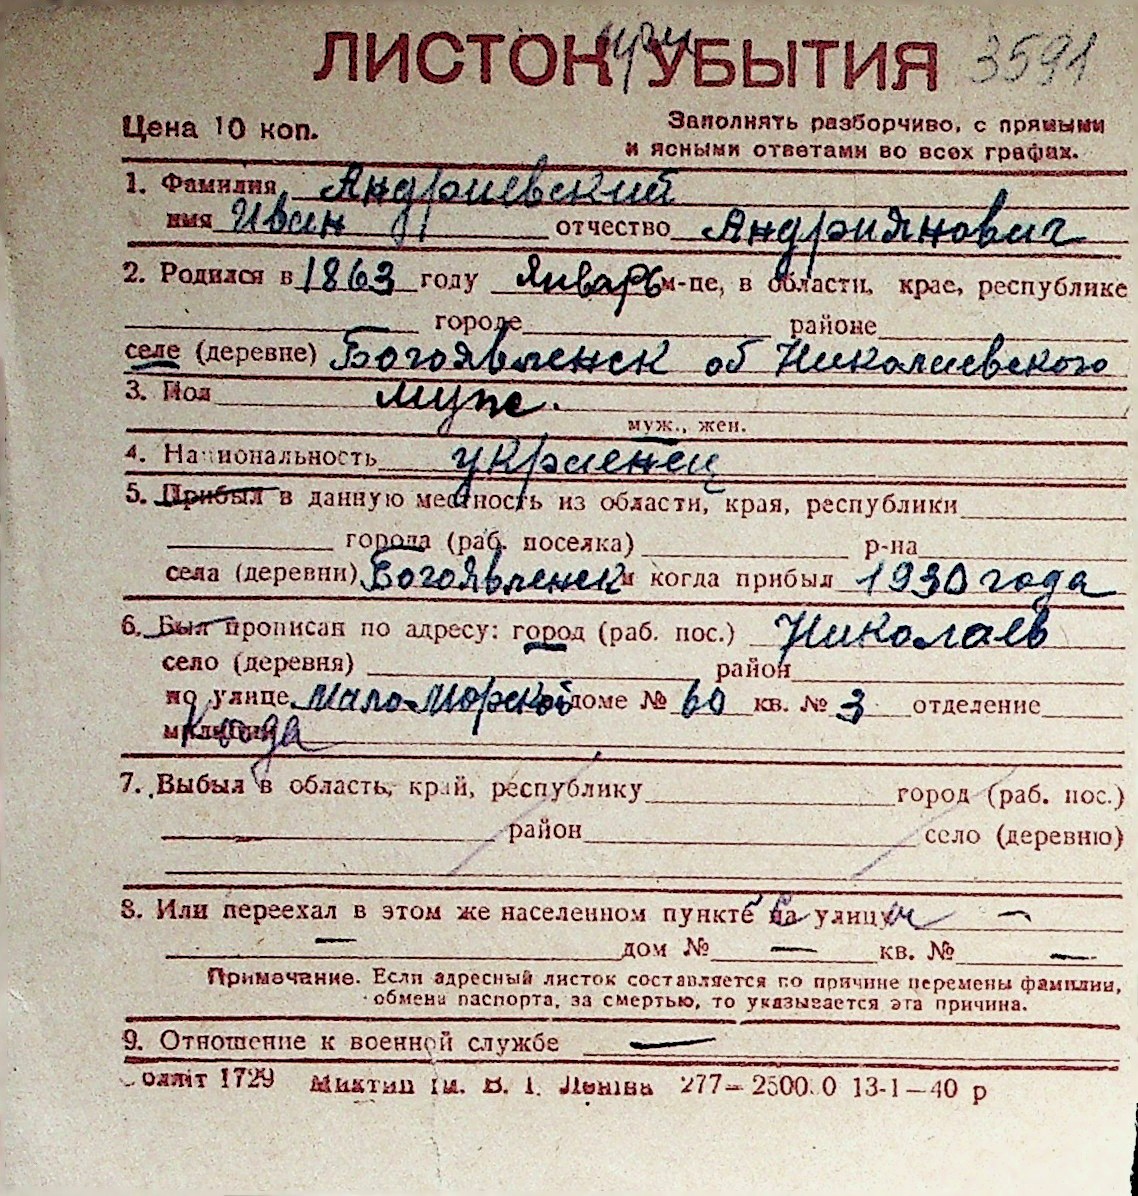 ЛИСТОК при УБЫТИЯ 3591
Цена 10 коп.
Заполнять разборчиво, с прямыми
и ясными ответами во всех графах.
1. Фамилия Андриевский
имя Иван отчество Андриянович
2. Родился в 1863 году Январь м-це, в области, крае, республике
городе районе
селе (деревне) Богоявленск об Николаевского
3. Пол муж.
муж., жен.
4. Национальность украенец
5. Прибыл в данную местность из области, края, республики
города (раб. поселка) р-на
села (деревни) Богоявленск и когда прибыл 1930 года
6. Был прописан по адресу: город (раб. пос.) Николаев
село (деревня) район
по улице Мало-Морской доме № 60 кв. № 3 отделение
милиции
7. Выбыл в область, край, республику город (раб. пос.)
район село (деревню)
8. Или переехал в этом же населенном пункте на улицу —
— дом № — кв. № —
Примечание. Если адресный листок составляется по причине перемены фамилии,
обмена паспорта, за смертью, то указывается эта причина.
9. Отношение к военной службе —
1729 ім. В. І. Леніна 277— 13-1—40 р